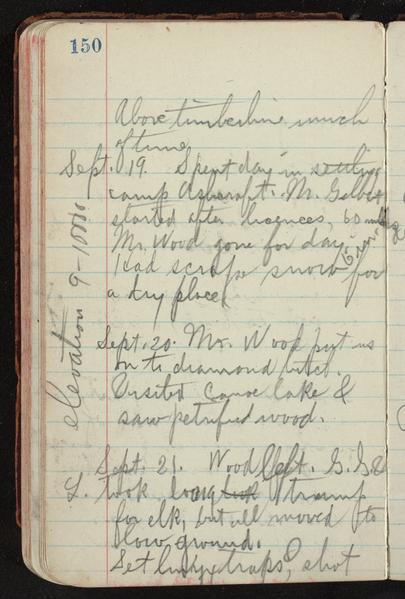 150
Above timberline much
of time.
Sept. 19. Spent day in settling
camp Ashcraft. Mr. Gilbert
started after licences, 60 miles
Mr. Wood gone for day.
Had scrape snow for
a dry place
elevation 9-10000
Sept. 20. Mr. Wood put us
on to diamond hitch.
Visited Canoe Lake &
saw petrified wood.
Sept. 21. Wood left. G. G. &
L. took long tramp
for elk, but all moved to
low ground.
Set traps, shot